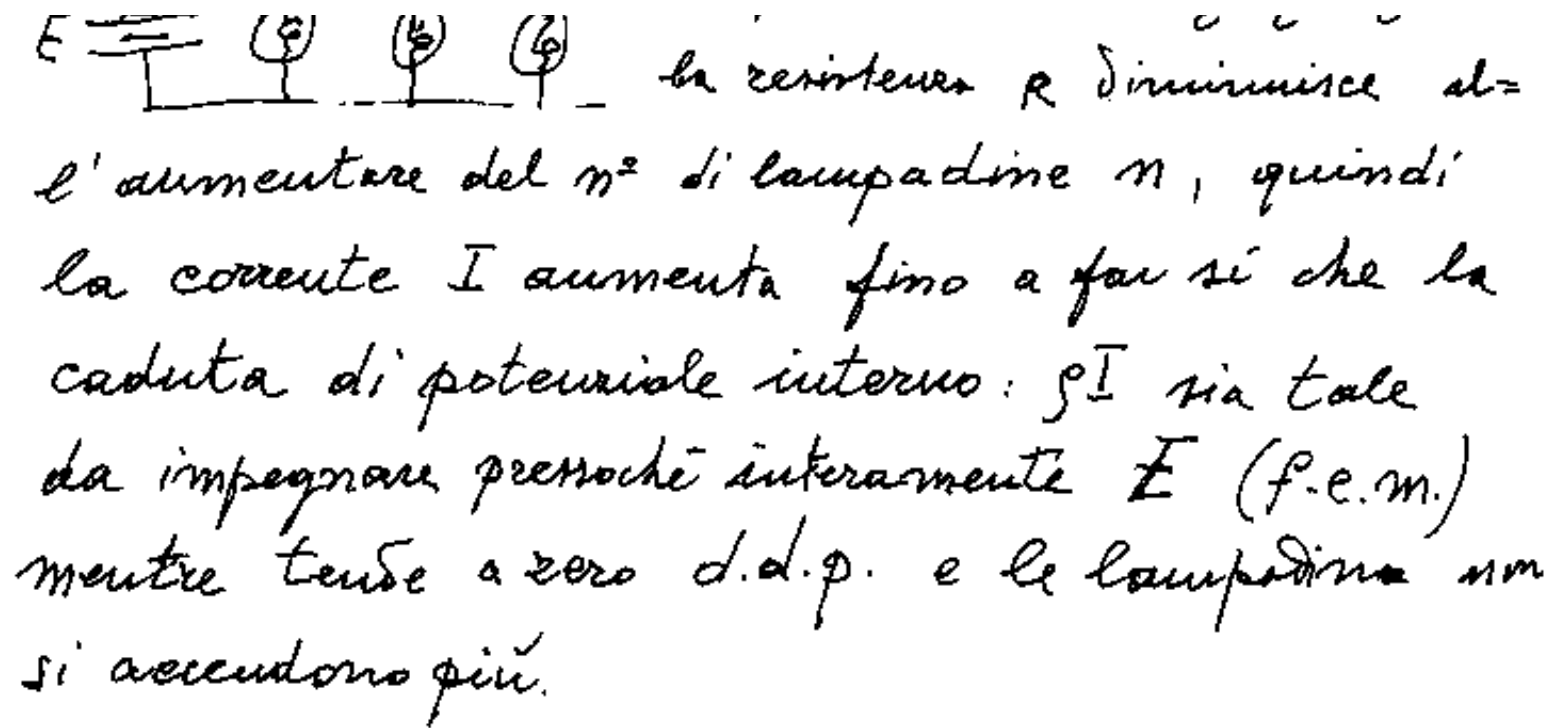 E la resistenza R diminuisce al=
l'aumentare del nº di lampadine n, quindi
la corrente I aumenta fino a far sì che la
caduta di potenziale interno: ρI sia tale
da impegnare pressoché interamente E (f.e.m.)
mentre tende a zero d.d.p. e le lampadine non
si accendono più.